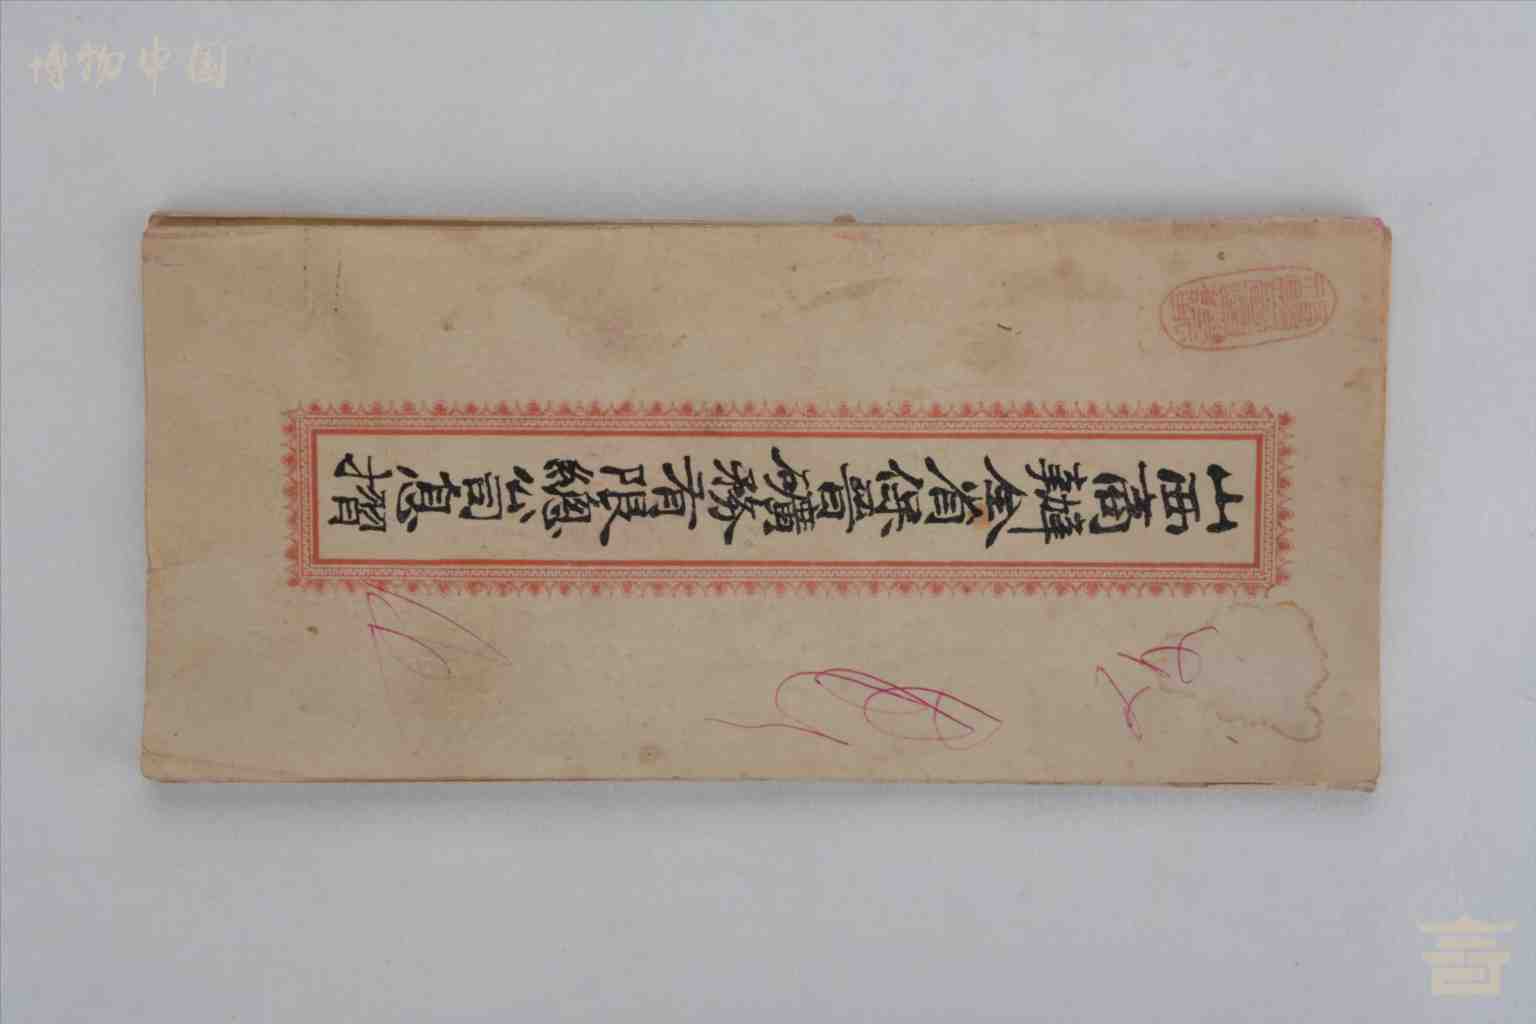 博物中国
山西商辦全省保晉礦務有限總公司息摺